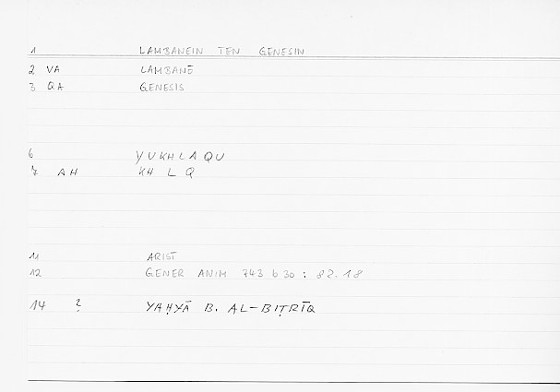 1 LAMBANEIN TEN GENESIN
2 VA LAMBANŌ
3 QA GENESIS
6 YUKHLAQU
7 AH KH L Q
11 ARIST
12 GENER ANIM 743 b 30 : 82.18
14 ? YAḤYĀ B. AL-BIṬRĪQ